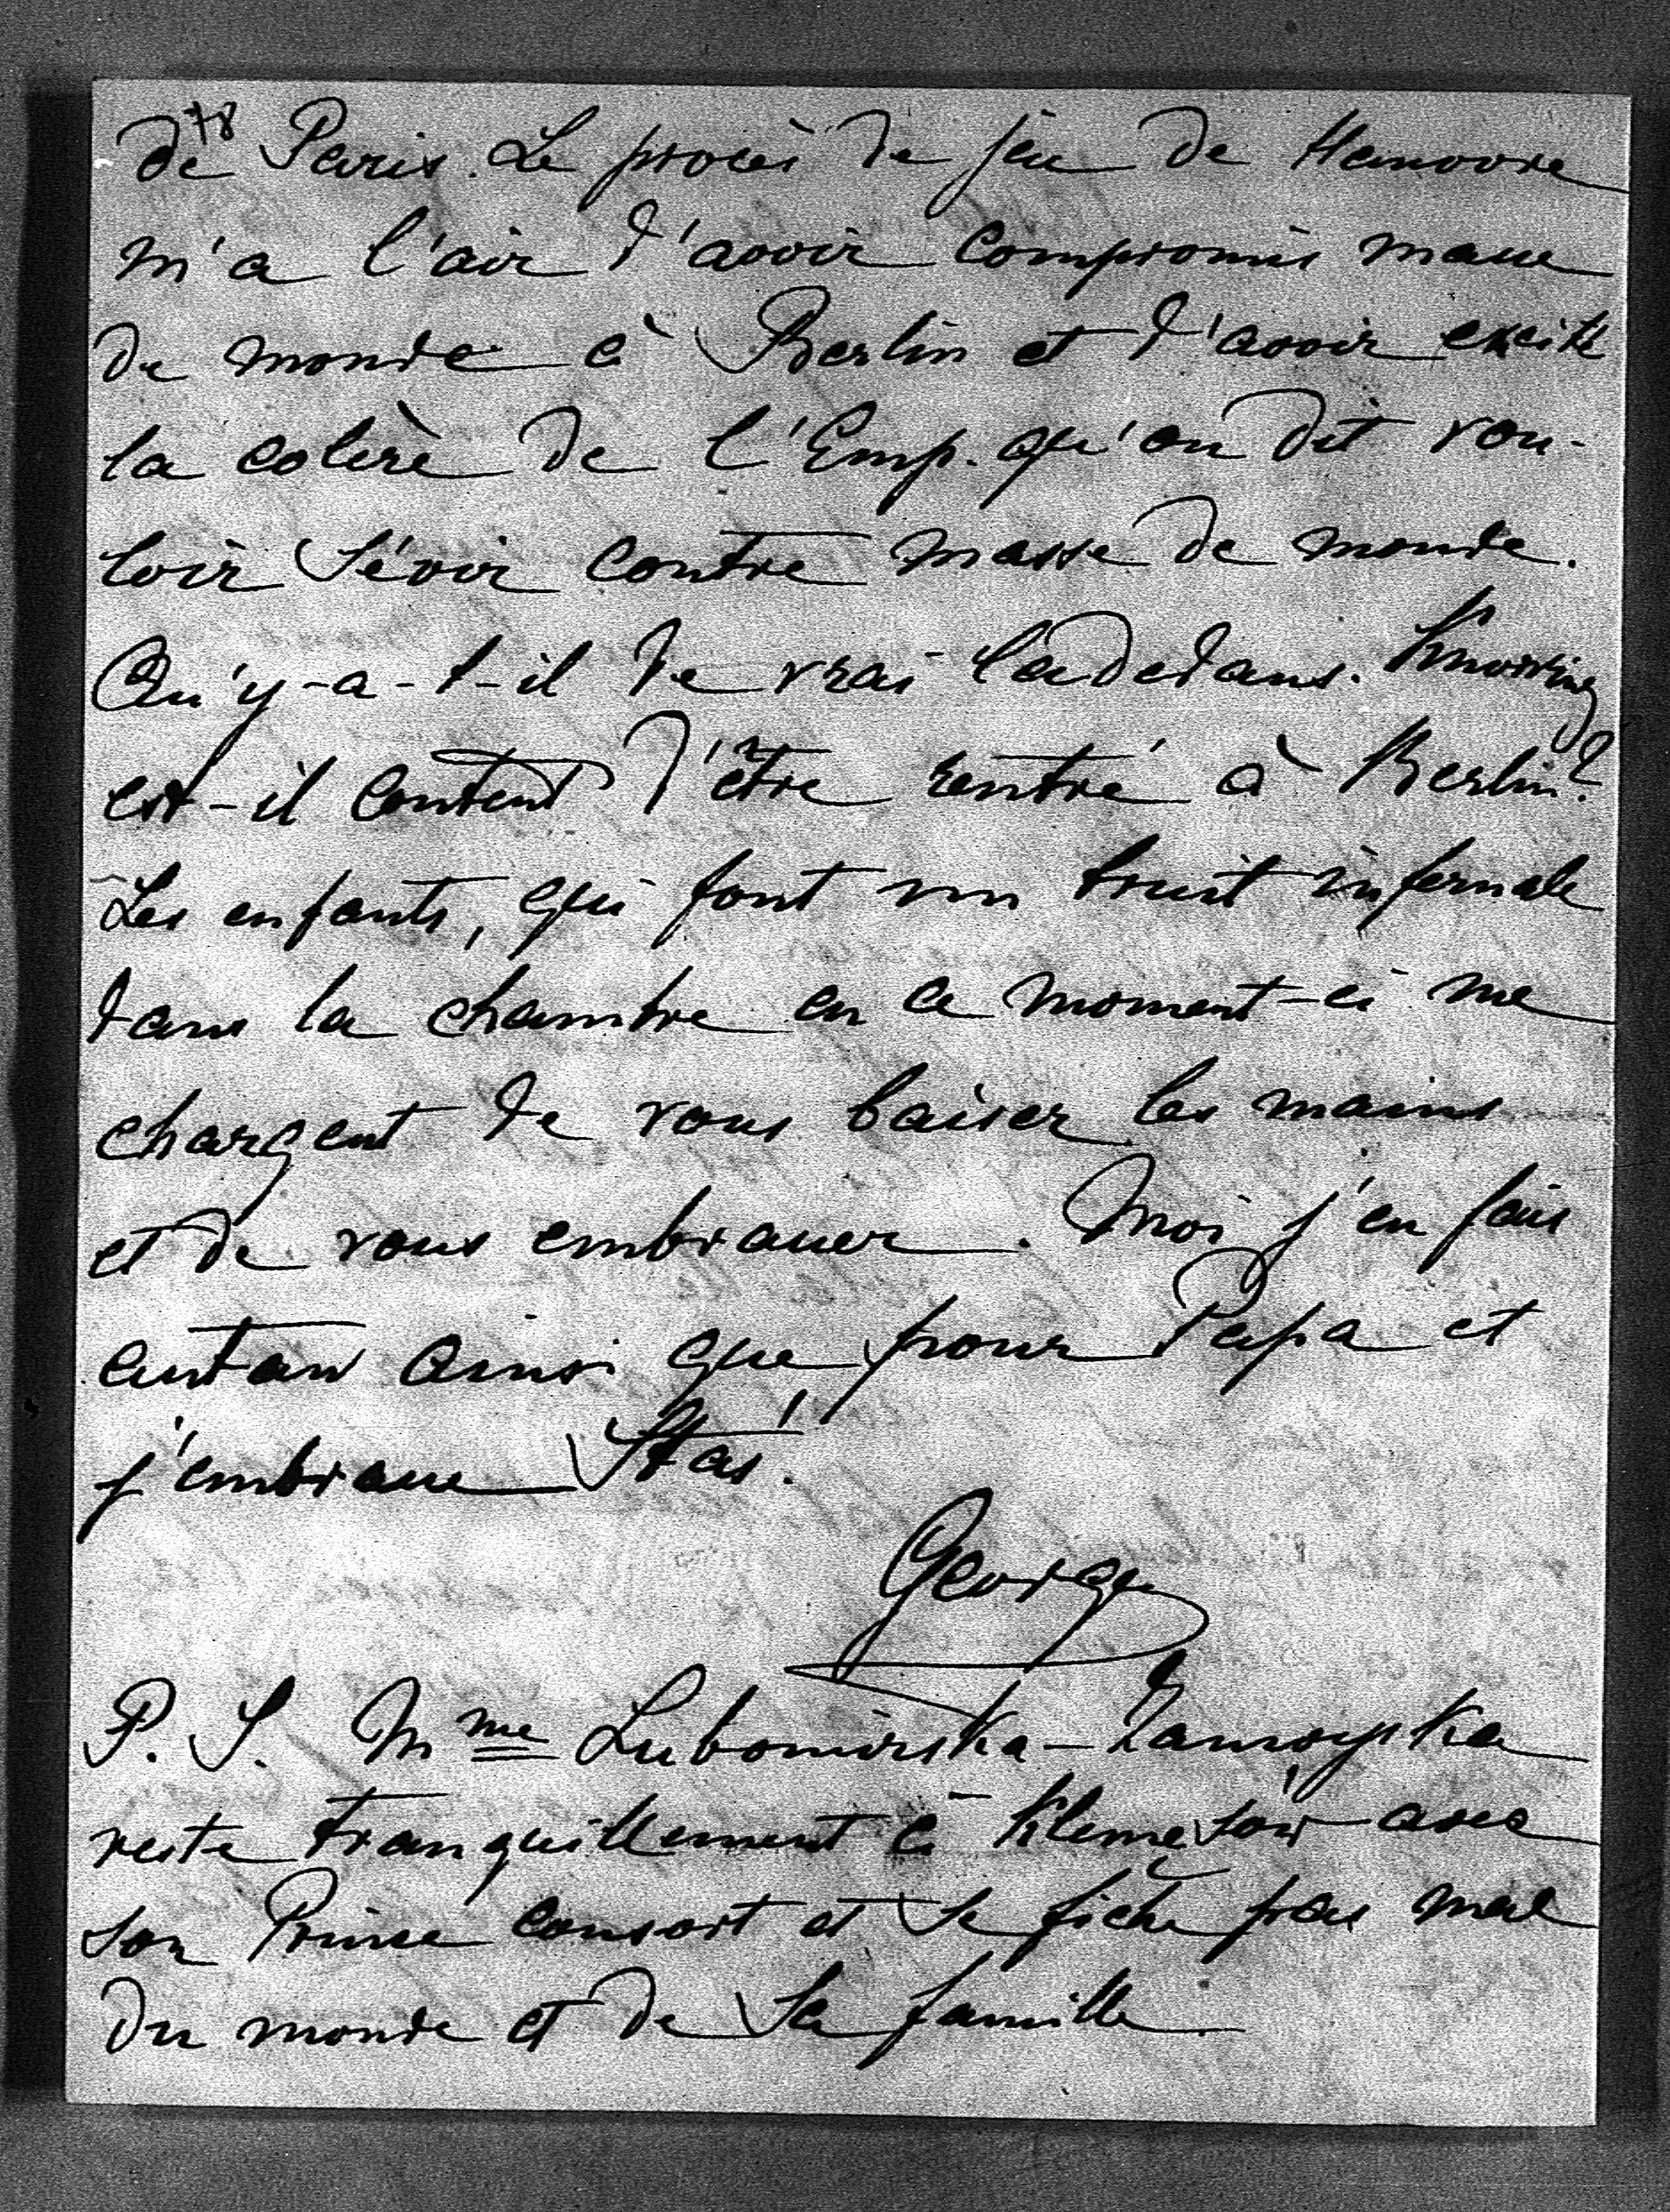 78
de Paris. Le procès de jeu de Hanovre
m'a l'air d'avoir compromis masse
de monde à Berlin et d'avoir excité
la colère de l'Emp. qu'on dit vou-
loir sévir contre masse de monde.
Qu'y-a-t-il de vrai ladedans. Knorring
est-il content d'être rentré à Berlin?
Les enfants, qui font un bruit infernale
dans la chambre en ce moment-ci me
chargent de vous baiser les mains
et de vous embrasser. Moi j'en fais
autant ainsi que pour Papa et
j'embrasse Staś.
Georges
P. S. Mme Lubomirska-Zamoyska
reste tranquillement à avec
son Prince consort et se fiche pas mal
du monde et de sa famille